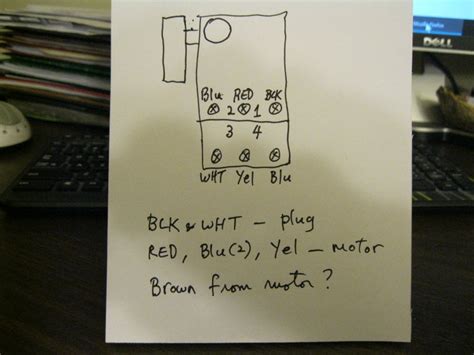 Blu RED BLK
2 1
3 4
WHT Yel Blu
BLK & WHT — plug
RED, Blu(2), Yel — motor
Brown from motor?
DELL